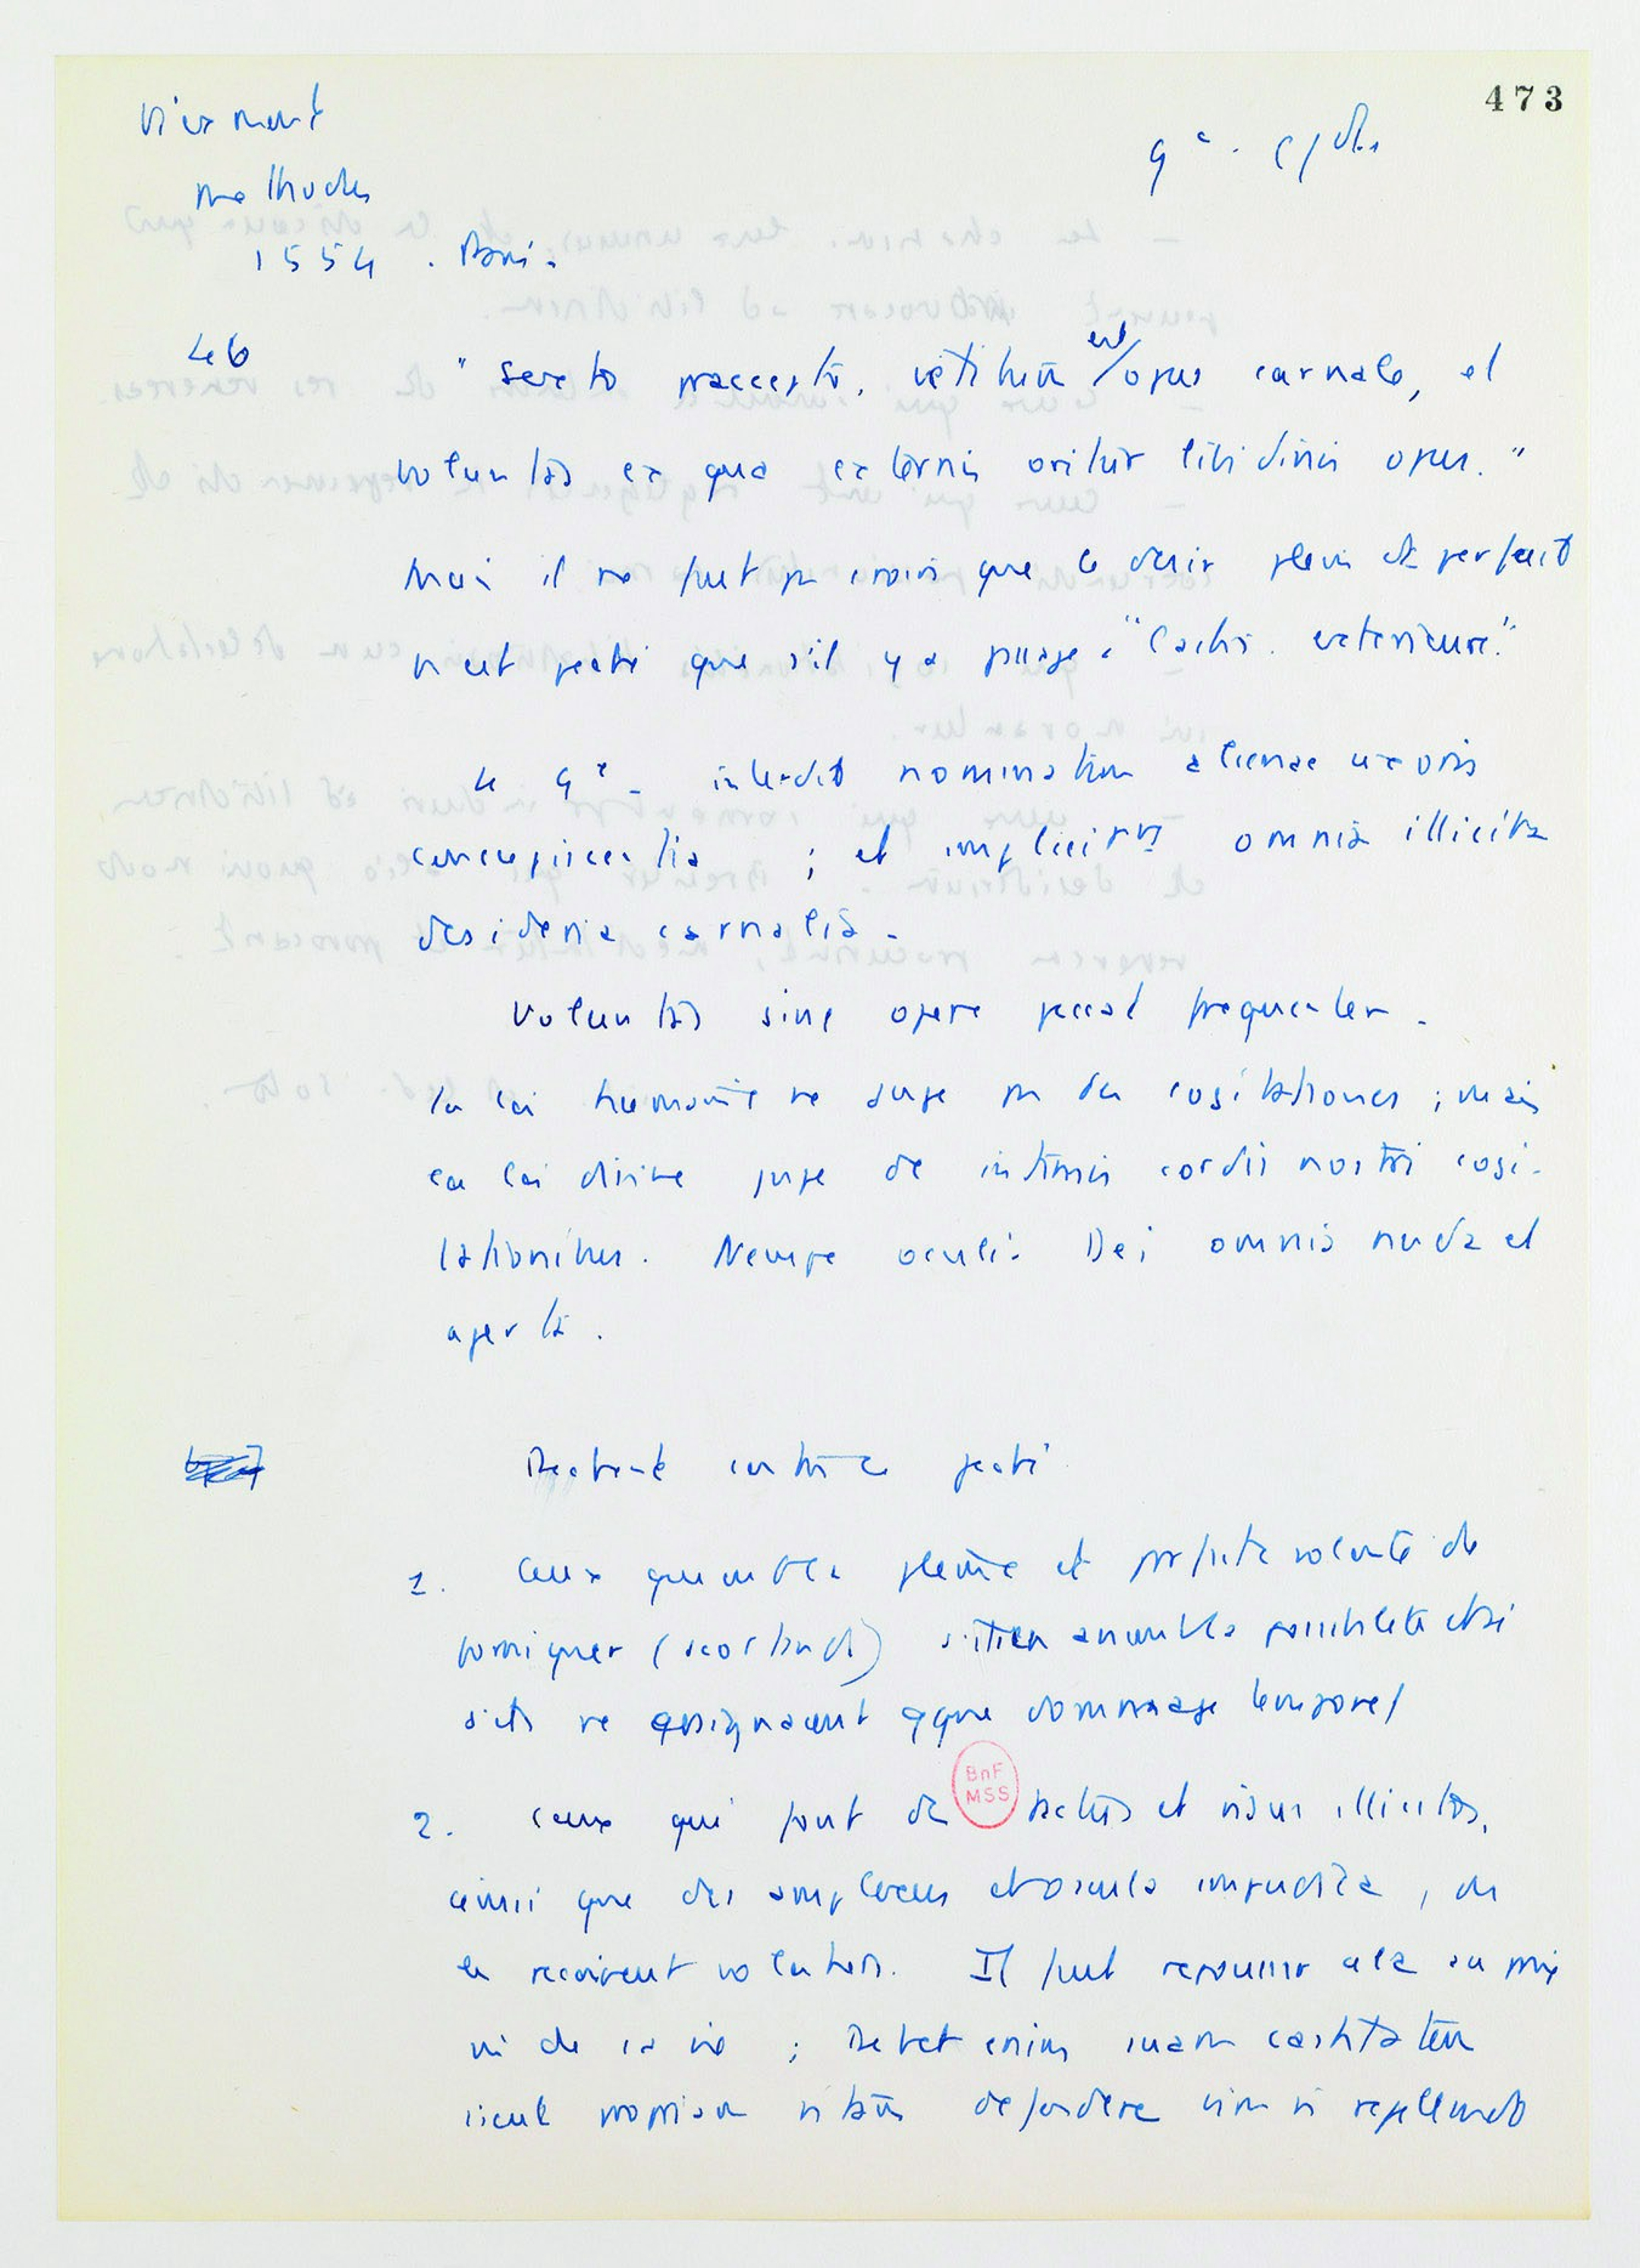 473
Viexmont
Methodus
1554. Paris.
9e.
46
"Sexto praecepto, vetitum est opus carnale, et
voluntas ex qua externis oritur libidinis opus."
Mais il ne faut pas croire que le désir plein et parfait
n'est péché que s'il y a passage à "l'action extérieure".
Le 9e. interdit nominatim alienae uxoris
concupiscentia ; et implicitmt omnia illicita
desideria carnalia.
Voluntas sine opere peccat frequenter.
La loi humaine ne juge pas des cogitationes ; mais
la loi divine juge de intimis cordis nostri cogi-
tationibus. Nempe oculis Dei omnia nuda et
aperta.
Pèchent contre ce
1. Ceux qui ont la pleine et parfaite volonté de
forniquer (scortandi) s'ils en avaient la possibilité et si
s'ils ne craignaient qque dommage temporel
2. ceux qui font des tactus et visus illicitos,
ainsi que des amplexus et oscula impudica, ou
les reçoivent volontiers. Il faut repousser cela au prix
de sa vie ; Debet enim suam castitatem
sicut propriam vitam defendere vim vi repellendo
BnF
MSS